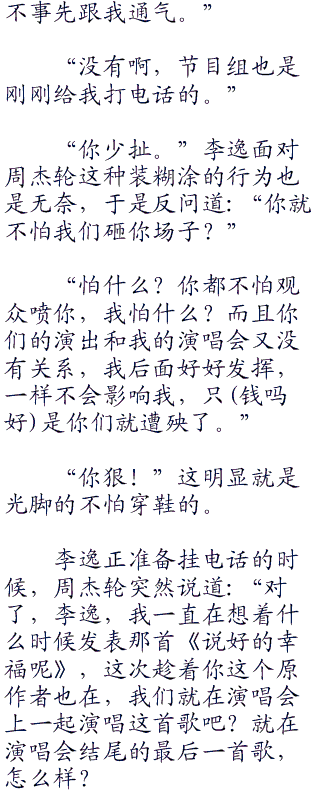 不事先跟我通气。”
“没有啊，节目组也是
刚刚给我打电话的。”
“你少扯。”李逸面对
周杰轮这种装糊涂的行为也
是无奈，于是反问道：“你就
不怕我们砸你场子？”
“怕什么？你都不怕观
众喷你，我怕什么？而且你
们的演出和我的演唱会又没
有关系，我后面好好发挥，
一样不会影响我，只(钱吗
好)是你们就遭殃了。”
“你狠！”这明显就是
光脚的不怕穿鞋的。
李逸正准备挂电话的时
候，周杰轮突然说道：“对
了，李逸，我一直在想着什
么时候发表那首《说好的幸
福呢》，这次趁着你这个原
作者也在，我们就在演唱会
上一起演唱这首歌吧？就在
演唱会结尾的最后一首歌，
怎么样？